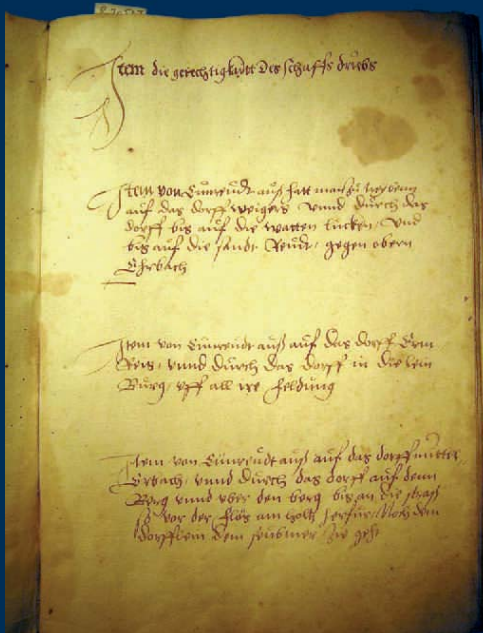 Item die gerechtigkeitt des schaffs driebs
Item von Eünreüdt auß hatt man zu treyben
auf das dorff weigers vnnd durch das
dorff bis auf die watten lucken, vnd
bis auf die sandt Reudt, gegen obern
Ehrbach
Item von Eünreudt auß auf das dorff
Reis, vnnd durch das dorff in die lein
Burg, vff all ire feldung
Item von Eünreudt auß auf das dorff nitter
Erbach, vnnd durch das dorff auf denn
Berg vnnd vber den berg bis an die straß
so vor der am holtz dem
dorfflein dem